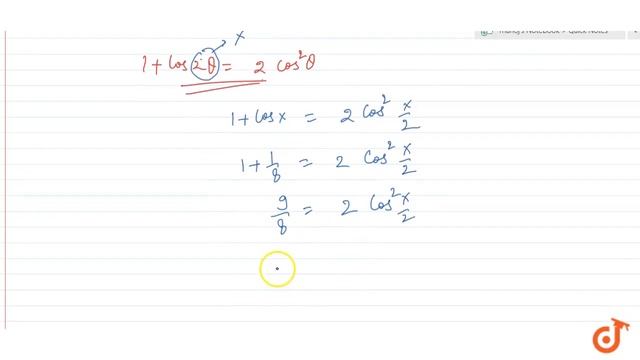 Manoj's Notebook > Quick Notes
x
1 + cos 2θ = 2 cos²θ
1 + cos x = 2 cos² x/2
1 + 1/8 = 2 cos² x/2
9/8 = 2 cos² x/2